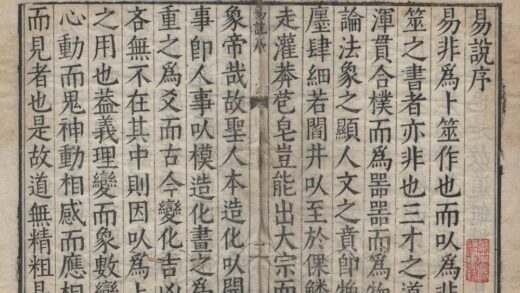 易說序
易非爲卜筮作也而以易
筮之書者亦非也三才之道
渾貫合樸而爲噐噐而爲物
論法象之顯人文之賁
廛肆細若闤井以至於倮鱗
走灌莽苞皂豈能出大宗而
易說序
象帝哉故聖人本造化以開
事卽人事以模造化畫之爲
重之爲爻而古今變化吉凶
吝無不在其中則因以爲卜
之用也葢義理變而象數變
心動而鬼神動相感而應相
而見者也是故道無精粗